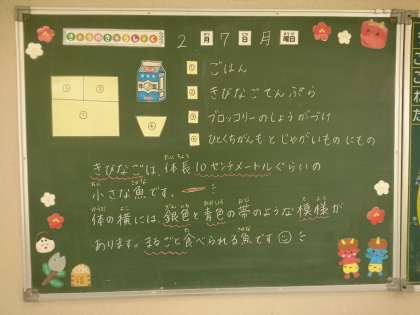 きょうのきゅうしょく
2月7日月曜日
① ごはん
② きびなごてんぷら
③ ブロッコリーのしょうがづけ
④ ひとくちがんもとじゃがいものにもの
きびなごは、体長10センチメートルぐらいの
小さな魚です。
体の横には、銀色と青色の帯のような模様が
あります。まるごと食べられる魚です